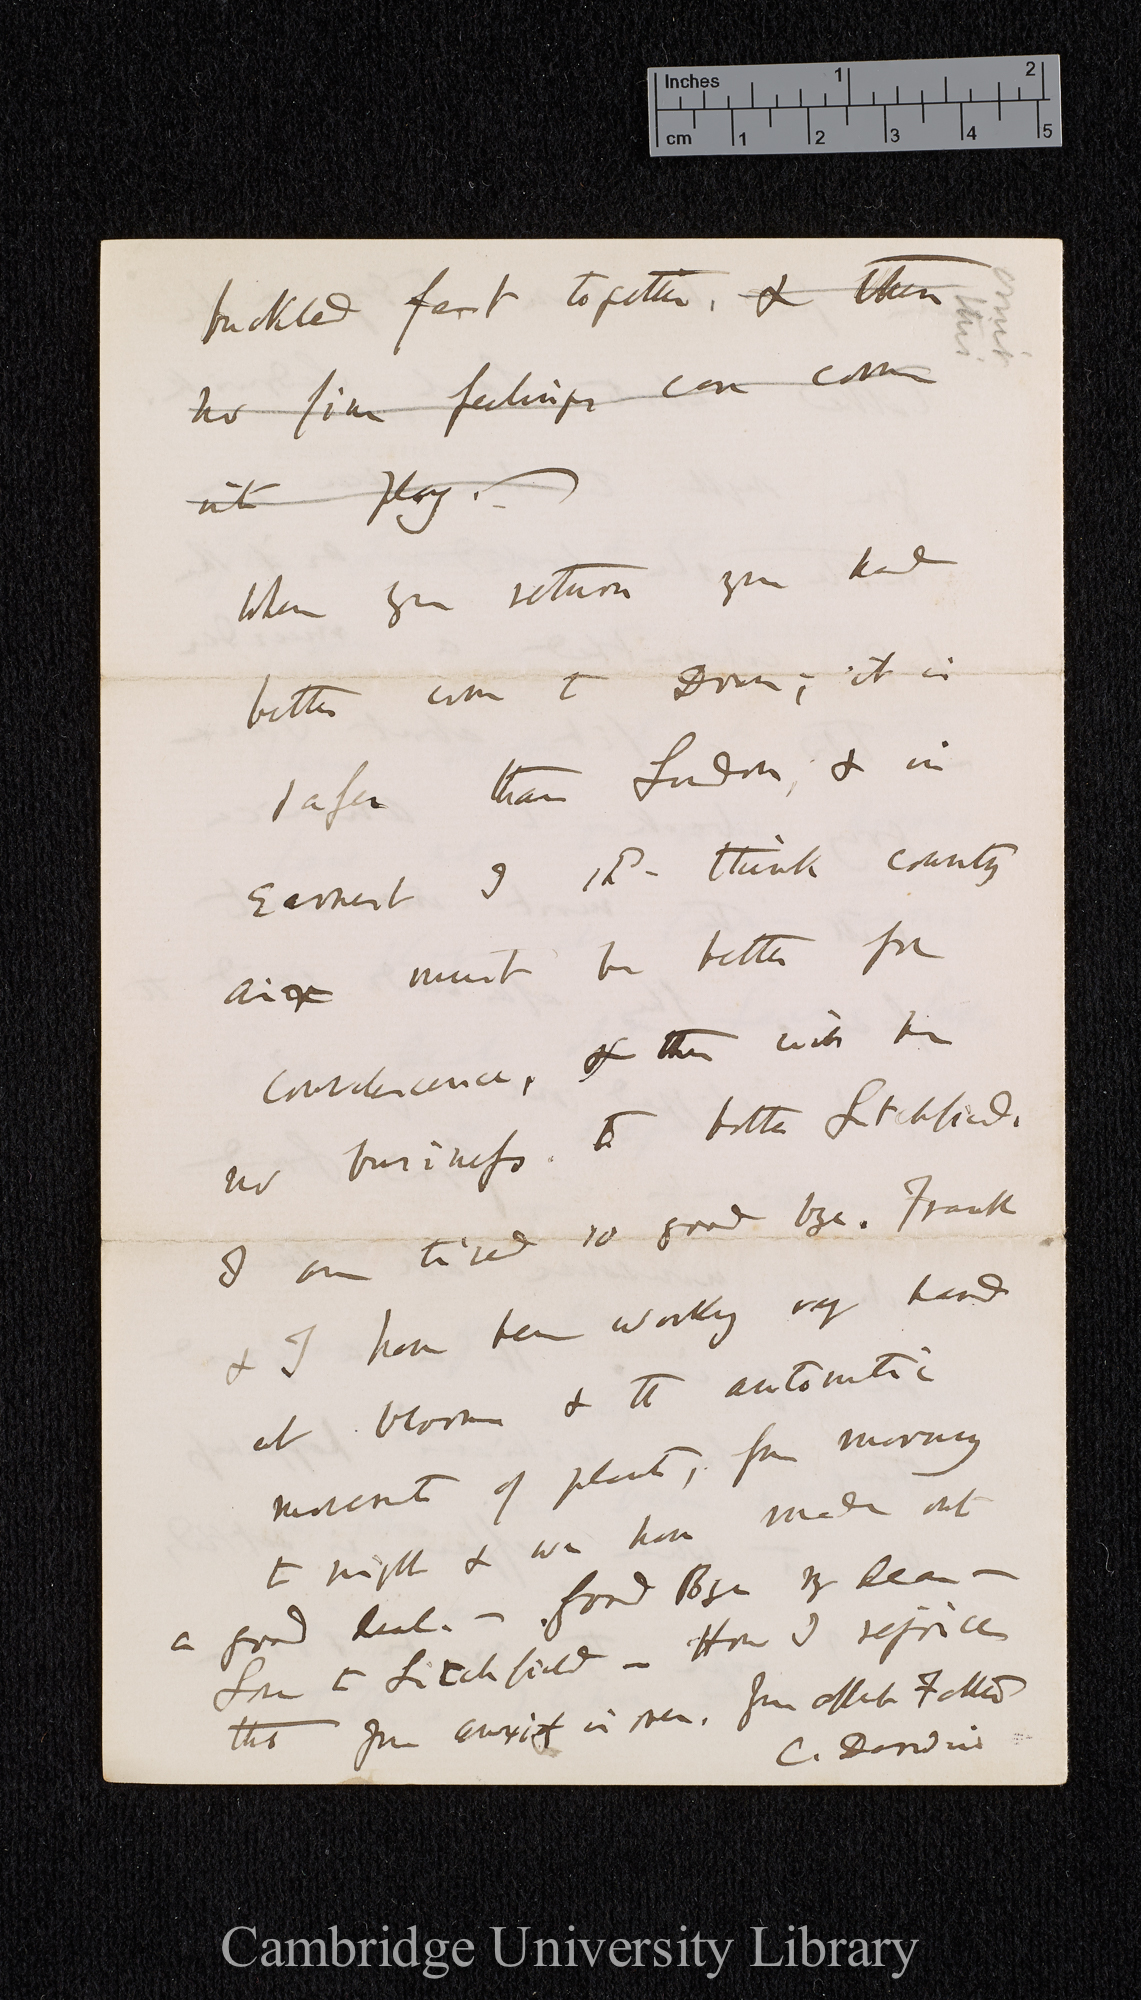 Inches 1 2
cm 1 2 3 4 5
omit
this
buckled fast together, & then
no fine feelings can come
into play.
When you return you had
better come to Down; it is
safer than London, & in
earnest I shd. think country
air must be better for
convalescence, & there will be
no business to bother Litchfield.
I am tired so good bye. Frank
& I have been working very hard
at bloom & the automatic
movements of plants, from morning
to night & we have made out
a good deal. — Good Bye my dear —
Love to Litchfield — How I rejoice
that your anxiety is over. Your affect Father
C. Darwin
Cambridge University Library